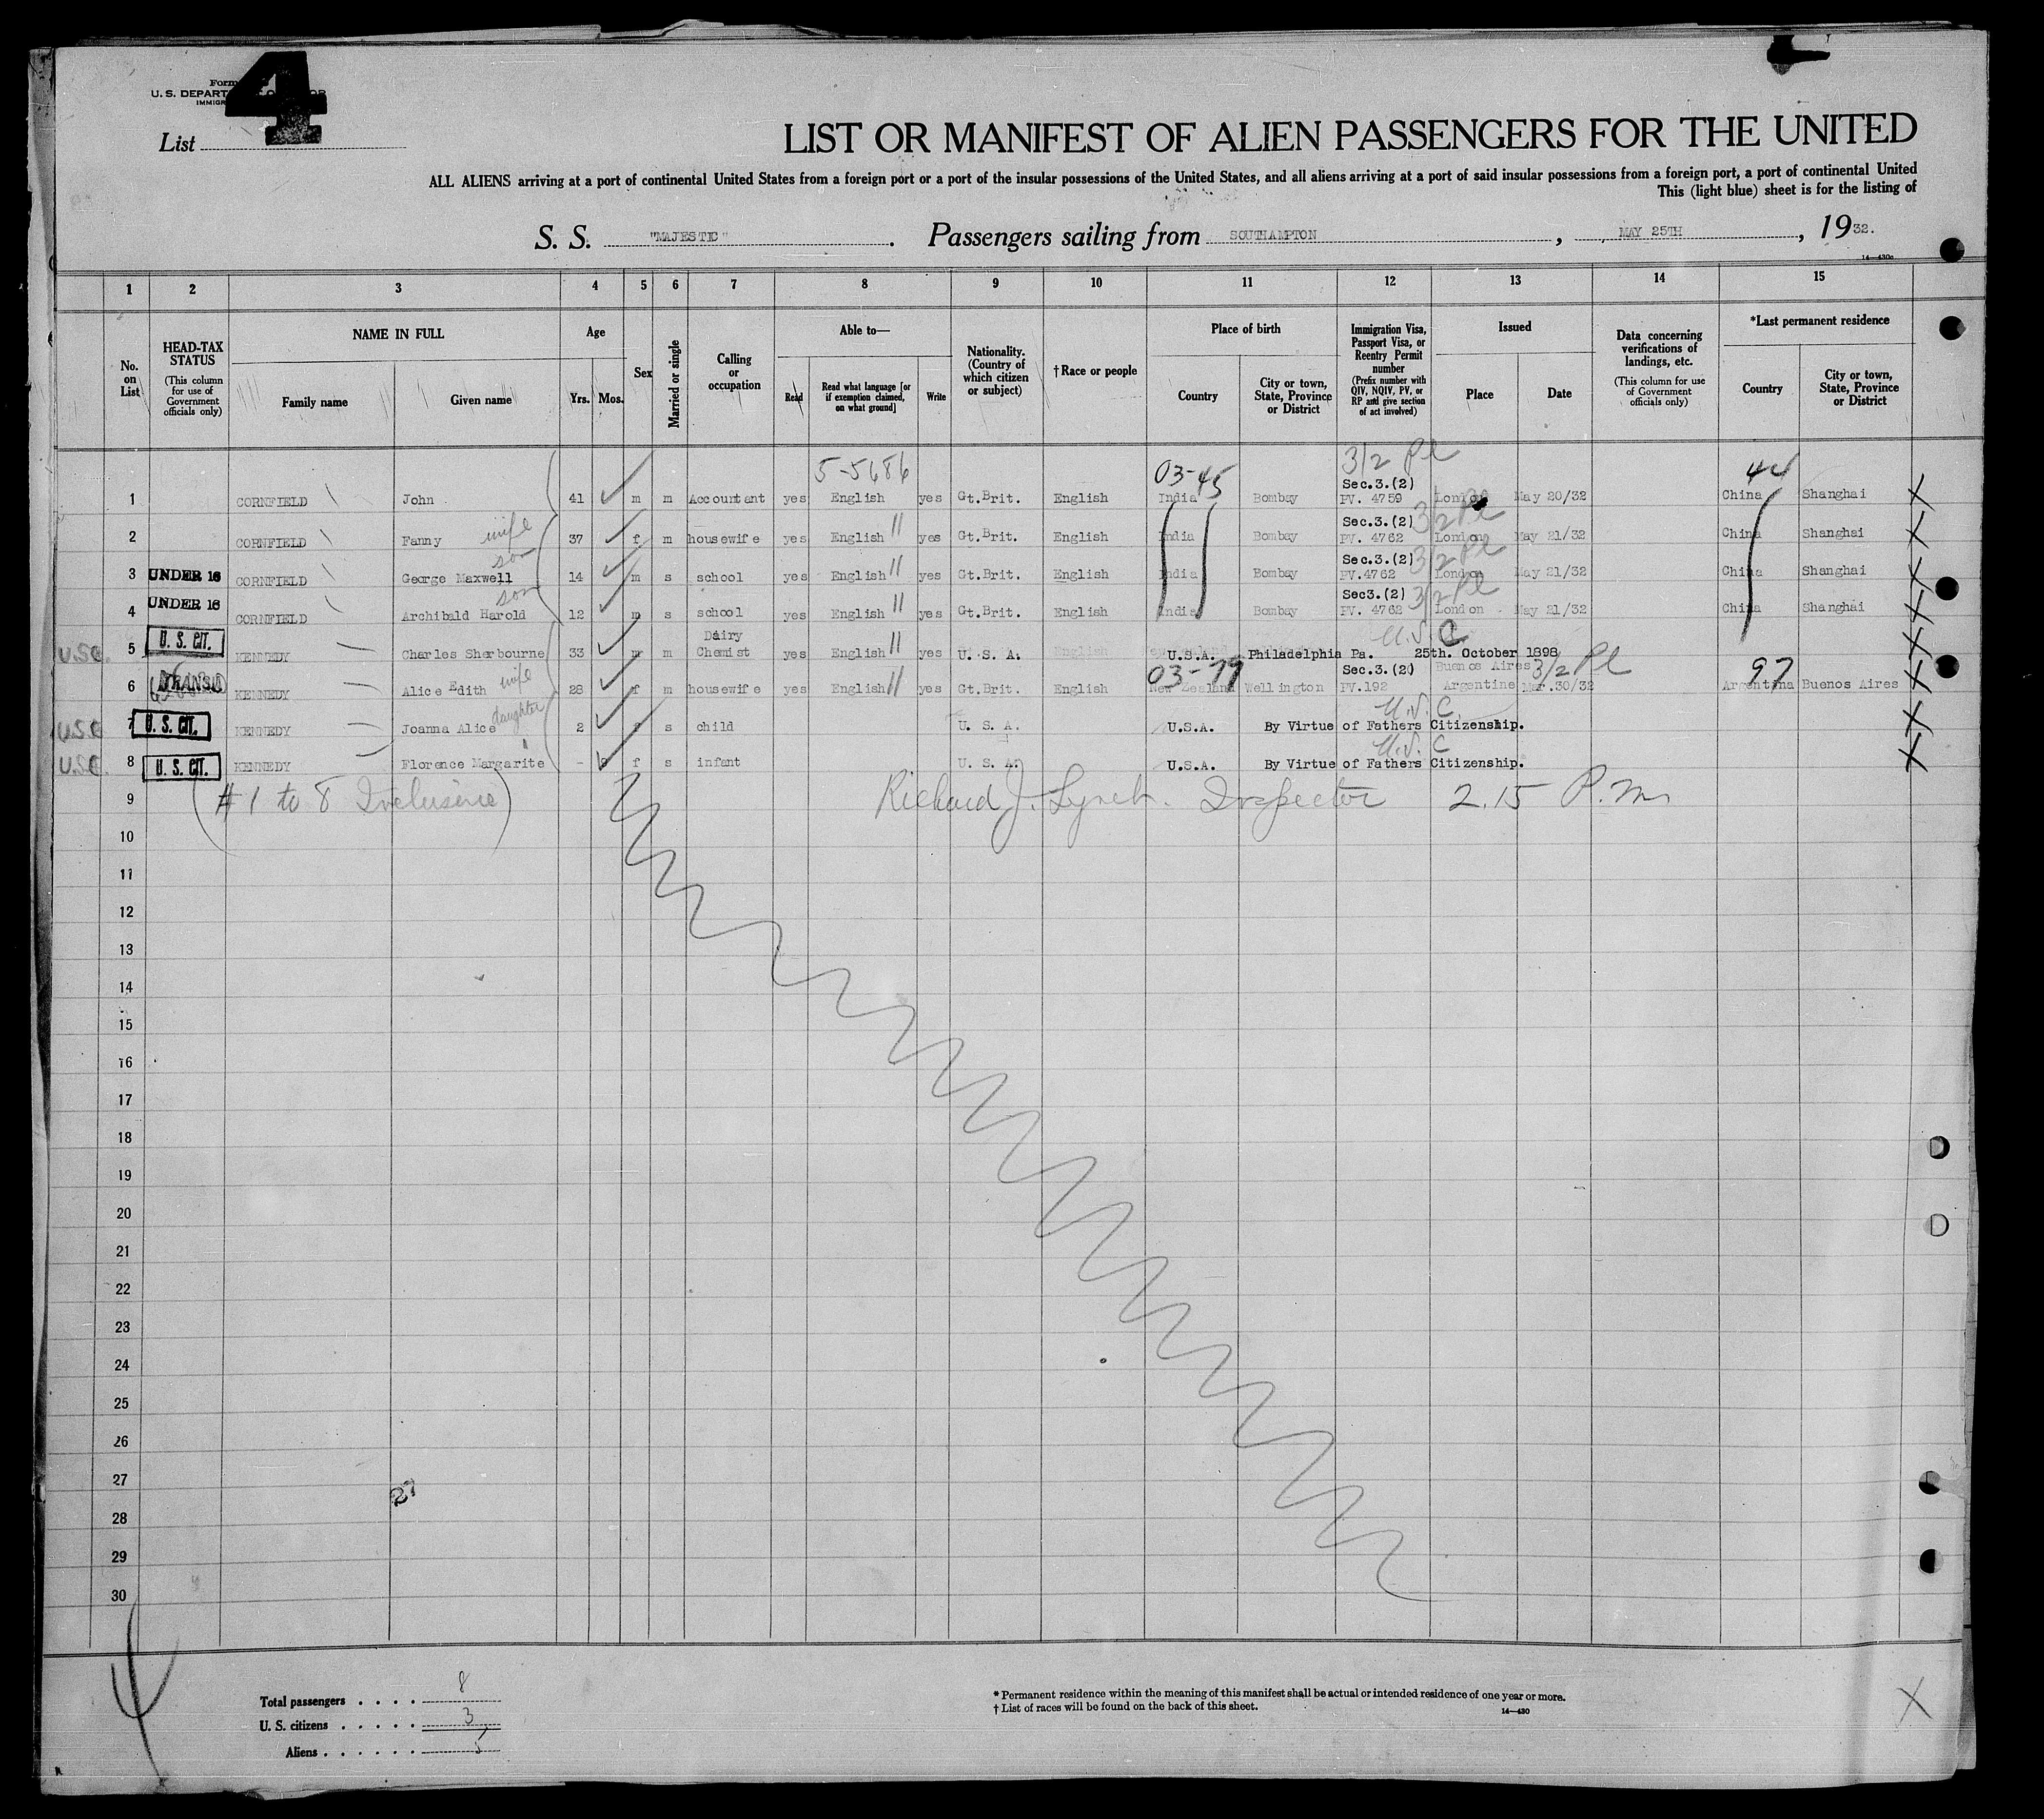 Form
U. S. DEPART
IMMIGR
4
List
LIST OR MANIFEST OF ALIEN PASSENGERS FOR THE UNITED
ALL ALIENS arriving at a port of continental United States from a foreign port or a port of the insular possessions of the United States, and all aliens arriving at a port of said insular possessions from a foreign port, a port of continental United
This (light blue) sheet is for the listing of
S. S. "MAJESTIC" . Passengers sailing from SOUTHAMPTON , MAY 25TH , 1932.
14—430c
1 2 3 4 5 6 7 8 9 10 11 12 13 14 15
No. on List
HEAD-TAX STATUS (This column for use of Government officials only)
NAME IN FULL
Family name Given name
Age
Yrs. Mos.
Sex
Married or single
Calling or occupation
Able to—
Read Read what language [or if exemption claimed, on what ground] Write
Nationality. (Country of which citizen or subject)
†Race or people
Place of birth
Country City or town, State, Province or District
Immigration Visa, Passport Visa, or Reentry Permit number (Prefix number with QIV, NQIV, PV, or RP and give section of act involved)
Issued
Place Date
Data concerning verifications of landings, etc. (This column for use of Government officials only)
*Last permanent residence
Country City or town, State, Province or District
5-5686 03-45 3/2 Pl 44
1 CORNFIELD John 41 m m Accountant yes English yes Gt.Brit. English India Bombay Sec.3.(2) PV. 4759 London May 20/32 China Shanghai
2 CORNFIELD Fanny wife 37 f m housewife yes English " yes Gt.Brit. English India Bombay Sec.3.(2) PV. 4762 3/2 Pl London May 21/32 China Shanghai
3 UNDER 16 CORNFIELD George Maxwell son 14 m s school yes English " yes Gt.Brit. English India Bombay Sec.3.(2) PV.4762 3/2 Pl London May 21/32 China Shanghai
4 UNDER 16 CORNFIELD Archibald Harold son 12 m s school yes English " yes Gt.Brit. English India Bombay Sec3.(2) PV. 4762 3/2 Pl London May 21/32 China Shanghai
USC 5 U. S. CIT. KENNEDY Charles Sherbourne 33 m m Dairy Chemist yes English " yes U. S. A. English U.S.A. Philadelphia Pa. U.S.C 25th. October 1898
6 TRANSIT KENNEDY Alice Edith wife 28 f m housewife yes English " yes Gt.Brit. English 03-77 New Zealand Wellington Sec.3.(2) PV.192 Buenos Aires Argentine Mar.30/32 3/2 Pl 97 Argentina Buenos Aires
USC 7 U. S. CIT. KENNEDY Joanna Alice daughter 2 f s child U. S. A. U.S.A. By Virtue of Fathers Citizenship. U.S.C.
USC. 8 U. S. CIT. KENNEDY Florence Margarite " - f s infant U. S. A. U.S.A. By Virtue of Fathers Citizenship. U.S.C
9 (#1 to 8 Inclusive) Richard J. Lynch. Inspector 2.15 P.m
10
11
12
13
14
15
16
17
18
19
20
21
22
23
24
25
26
27
28
29
30
Total passengers . . . . 8
U. S. citizens . . . . . 3
Aliens . . . . . . 5
* Permanent residence within the meaning of this manifest shall be actual or intended residence of one year or more.
† List of races will be found on the back of this sheet.
14—430